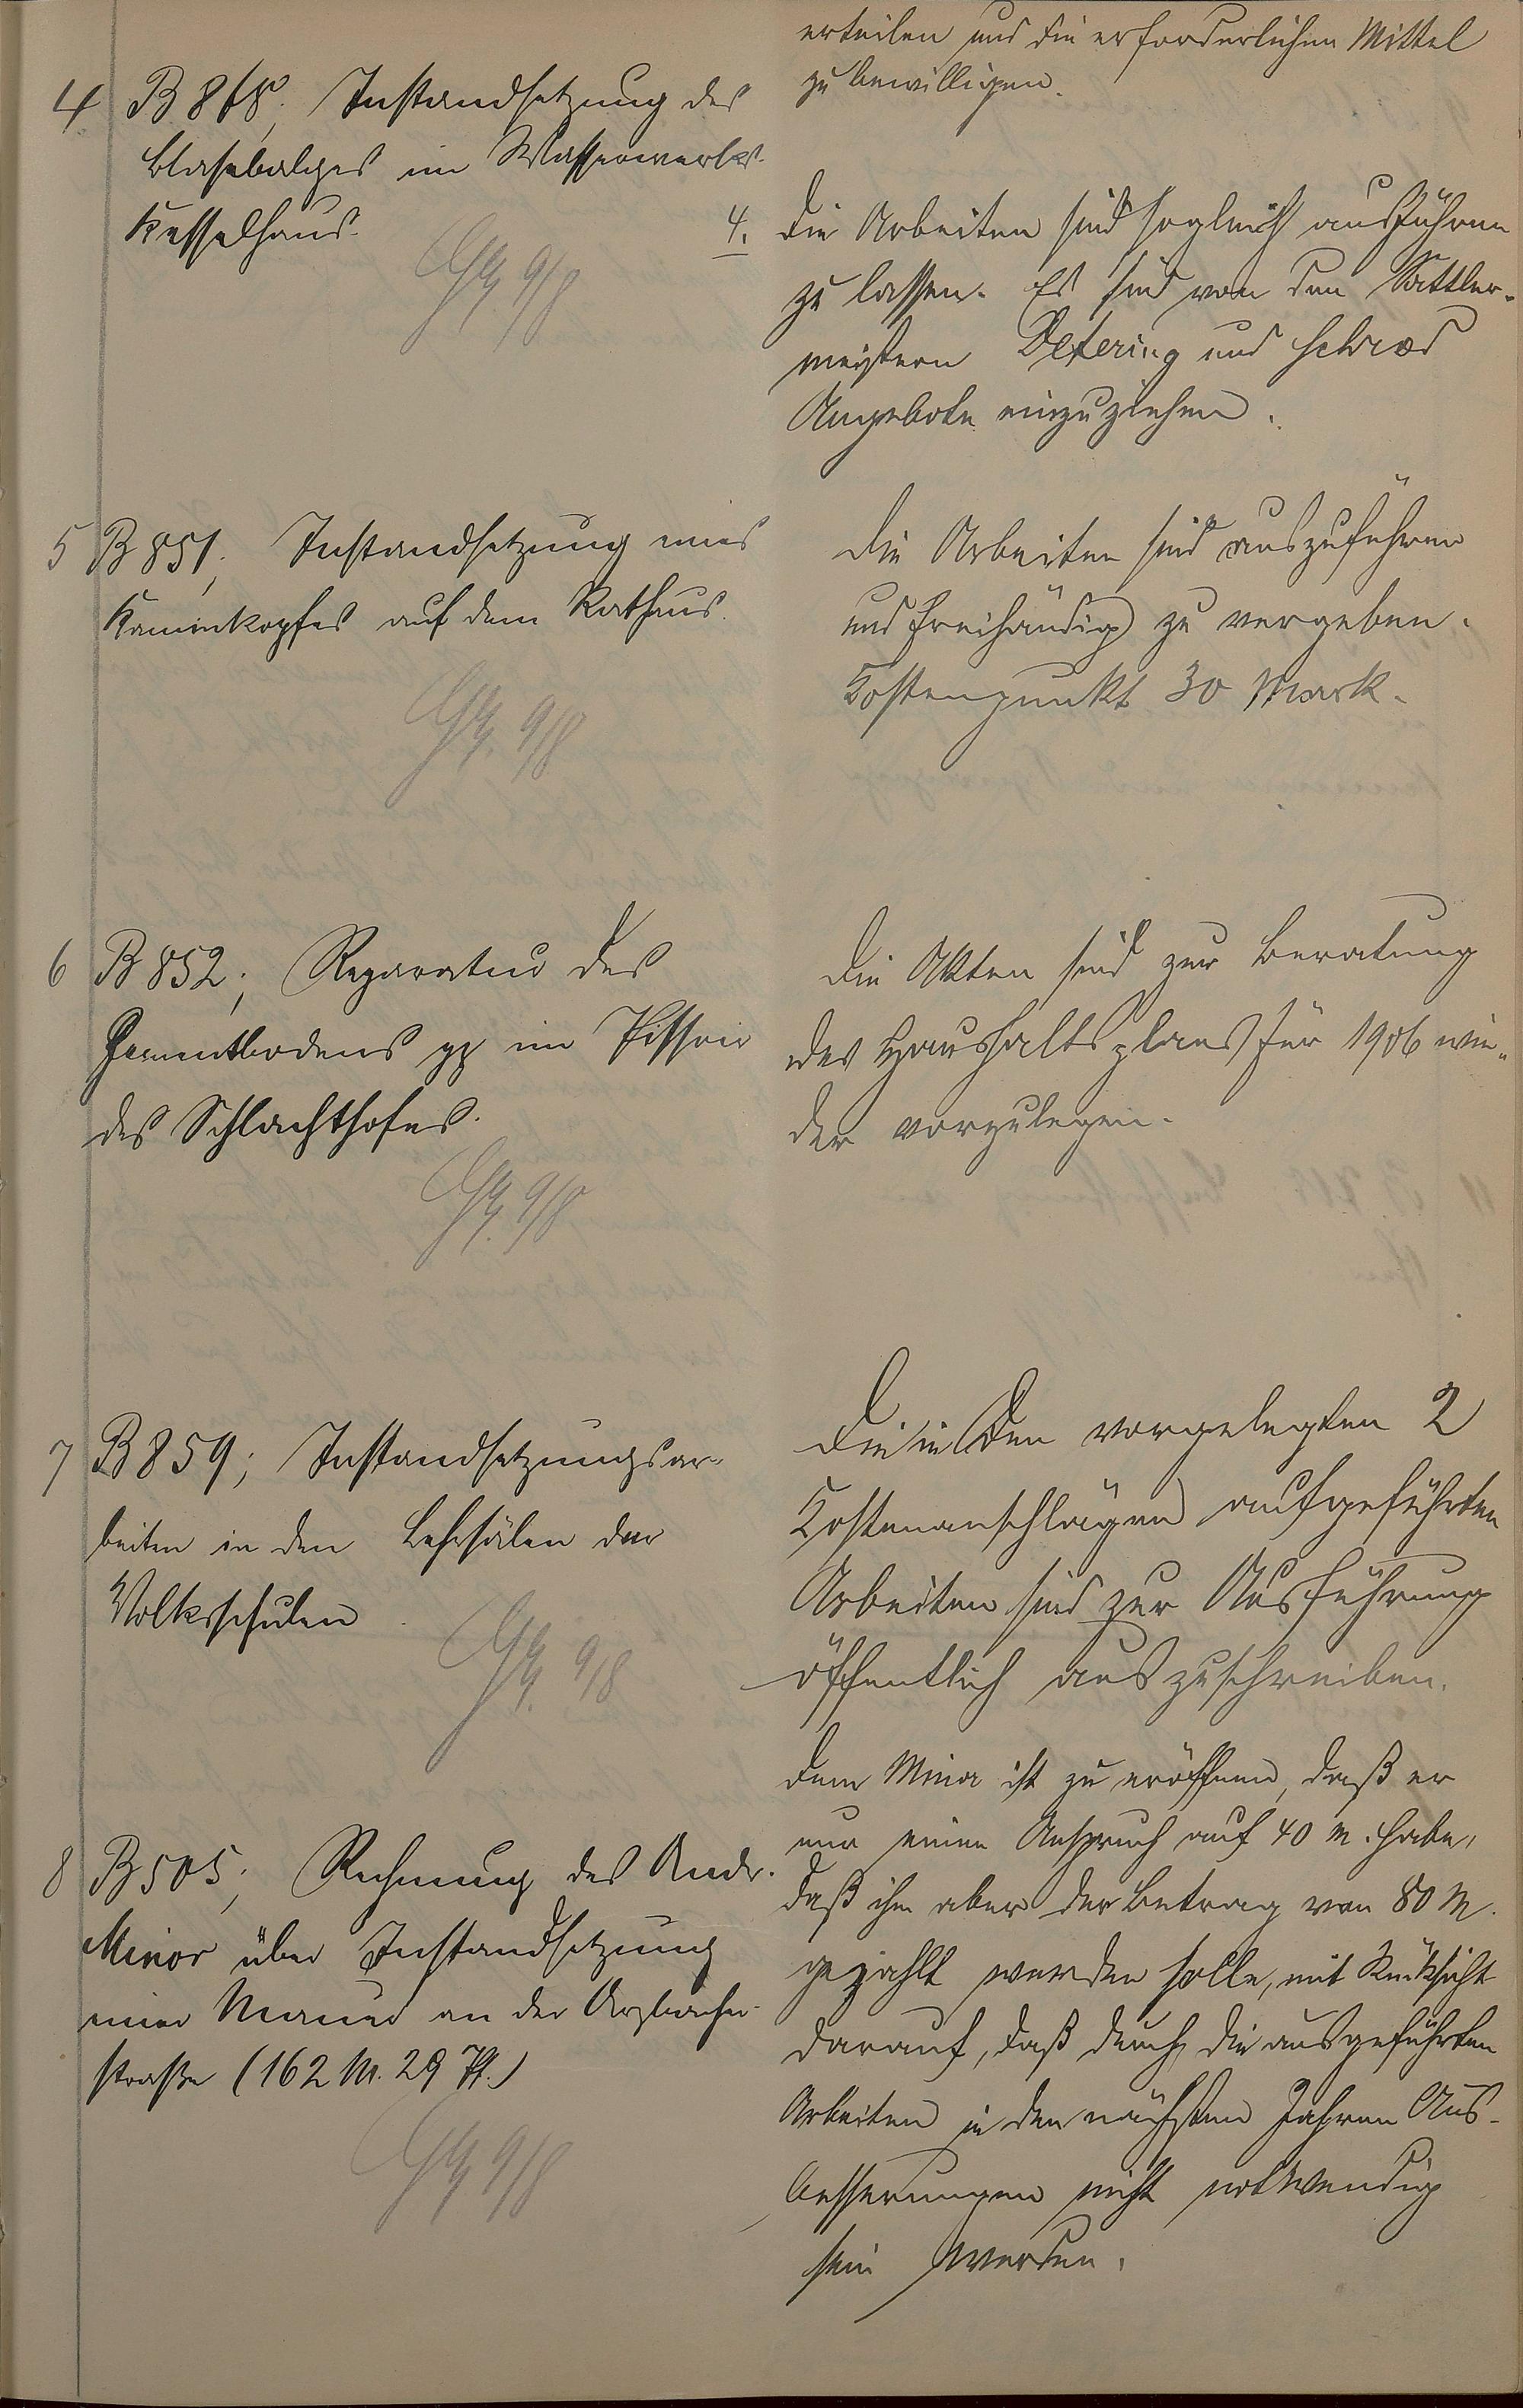 erteilen und die erforderlichen Mittel
zu bewilligen.
4 B 868; Instandsetzung des
Blasebalges im Wasserwerks-
Kesselhaus.
4. Die Arbeiten sind sogleich ausführen
zu lassen. Es sind von den Sattler-
meistern Detering und Schröd
Angebote einzuziehen.
5 B 851; Instandsetzung eines
Kaminkopfes auf dem Rathaus.
Die Arbeiten sind auszuführen
und freihändig zu vergeben.
Kostenpunkt 30 Mark.
6 B 852; Reparatur des
Zementbodens pp im Pissoir
des Schlachthofes.
Die Akten sind zur Beratung
des Haushaltsplans für 1906 wie-
der vorzulegen.
7 B 859; Instandsetzungsar-
beiten in den Lehrsälen der
Volksschulen.
Die in den vorgelegten 2
Kostenanschlägen aufgeführten
Arbeiten sind zur Ausführung
öffentlich auszuschreiben.
8 B 505; Rechnung des Andr.
Minor über Instandsetzung
einer Mauer an der Arzbacher-
straße (162 M. 29 Pf.)
Dem Minor ist zu eröffnen, daß er
nur einen Anspruch auf 40 M. habe,
daß ihm aber der Betrag von 80 M.
gezahlt werden solle, mit Rücksicht
darauf, daß durch die ausgeführten
Arbeiten in den nächsten Jahren Aus-
besserungen nicht notwendig
sein werden.
9/8
9/8
9/8
9/8
9/8